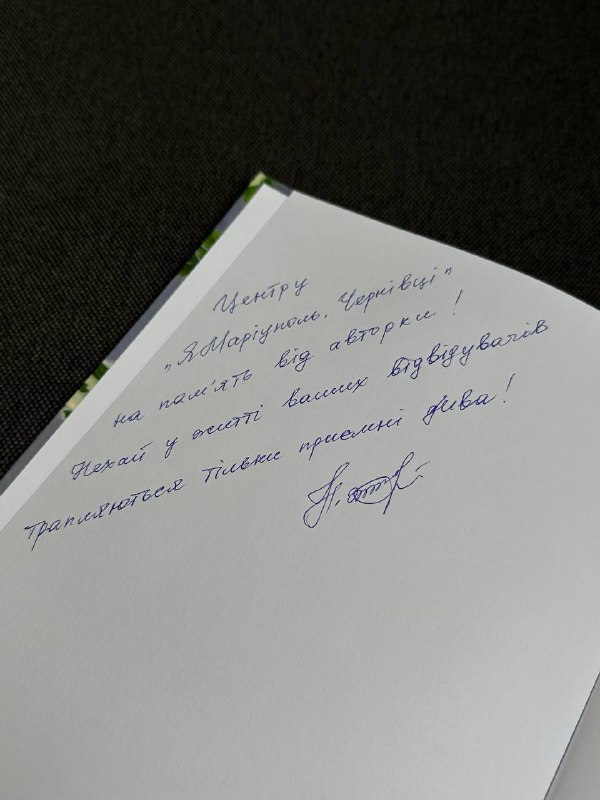 Центру
"Я Маріуполь. Чернівці"
на пам'ять від авторки!
Нехай у житті ваших відвідувачів
трапляються тільки приємні дива!